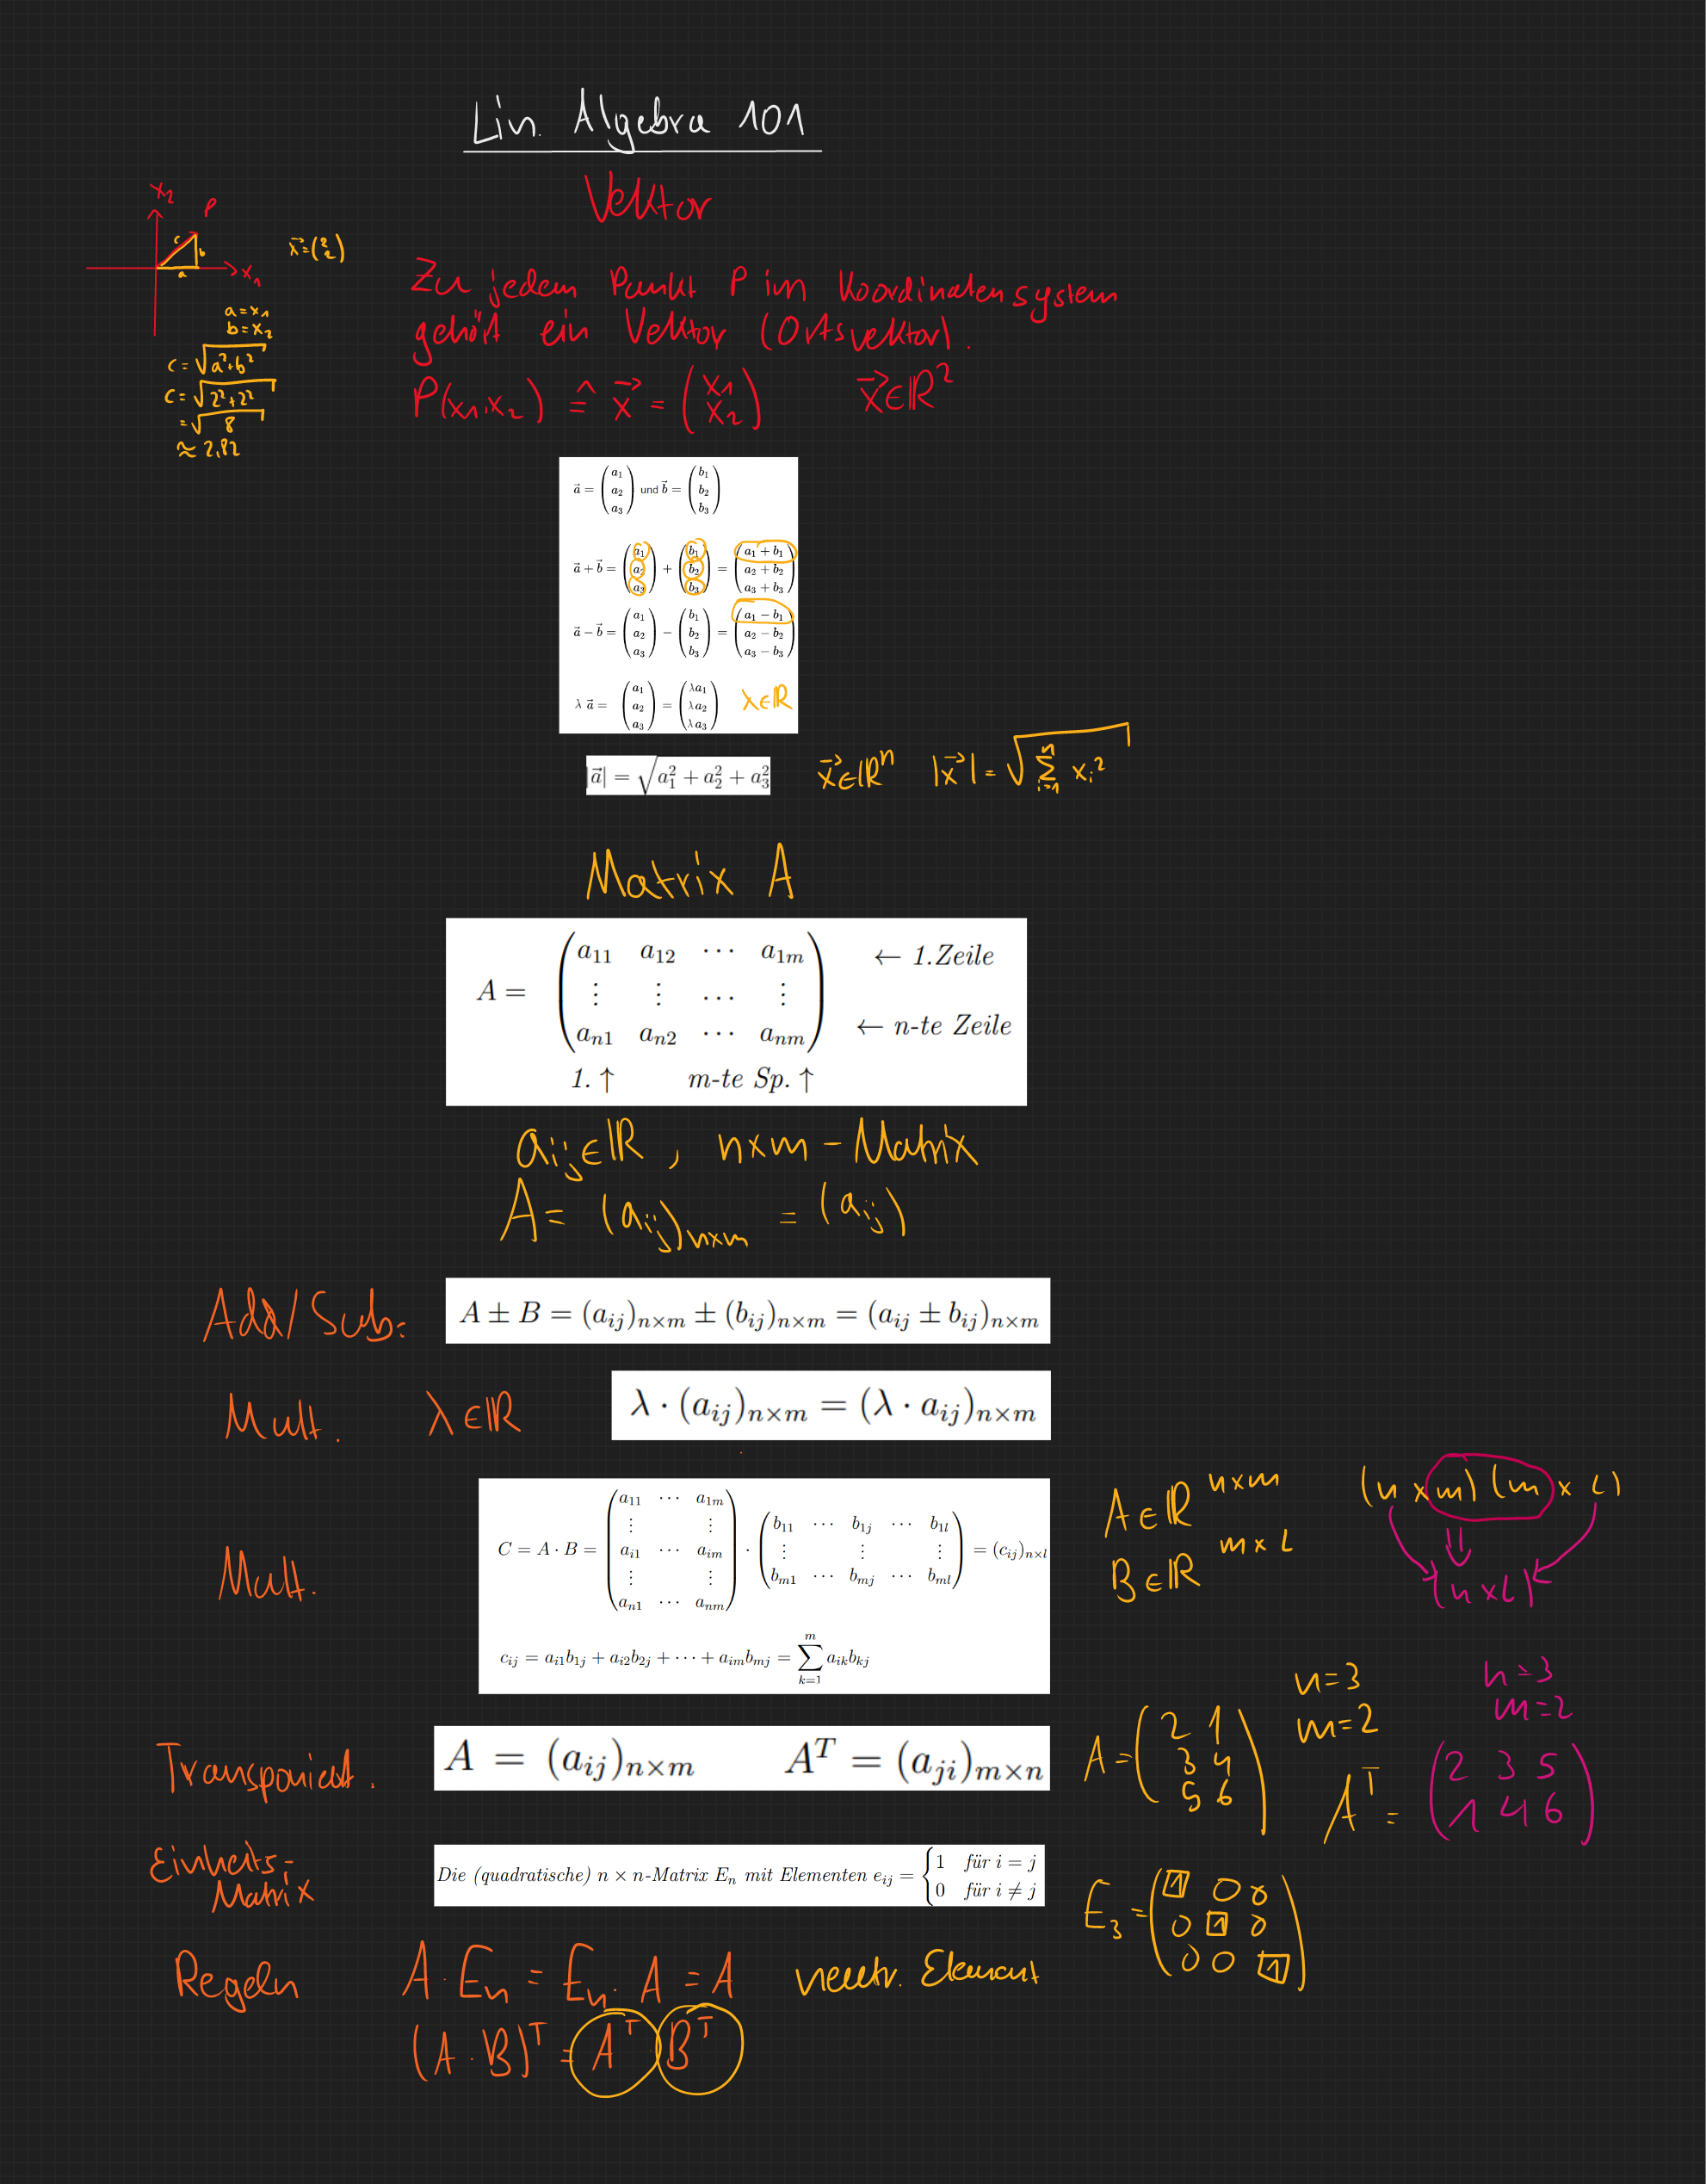 Lin. Algebra 101
Vektor
x₂
P
c
b
a
x₁
x⃗=(2 2)
a=x₁
b=x₂
c=√(a²+b²)
c=√(2²+2²)
=√8
≈2,82
Zu jedem Punkt P im Koordinatensystem
gehört ein Vektor (Ortsvektor).
P(x₁,x₂) ≙ x⃗ = (x₁ x₂) x⃗∈ℝ²
a⃗ = (a₁ a₂ a₃) und b⃗ = (b₁ b₂ b₃)
a⃗ + b⃗ = (a₁ a₂ a₃) + (b₁ b₂ b₃) = (a₁ + b₁ a₂ + b₂ a₃ + b₃)
a⃗ − b⃗ = (a₁ a₂ a₃) − (b₁ b₂ b₃) = (a₁ − b₁ a₂ − b₂ a₃ − b₃)
λ a⃗ = (a₁ a₂ a₃) = (λa₁ λa₂ λa₃) λ∈ℝ
|a⃗| = √(a₁² + a₂² + a₃²) x⃗∈ℝⁿ |x⃗| = √(∑ᵢ₌₁ⁿ xᵢ²)
Matrix A
a₁₁ a₁₂ ⋯ a₁ₘ ← 1.Zeile
A = ⋮ ⋮ … ⋮
aₙ₁ aₙ₂ ⋯ aₙₘ ← n-te Zeile
1. ↑ m-te Sp. ↑
aᵢⱼ∈ℝ , n×m – Matrix
A = (aᵢⱼ)ₙₓₘ = (aᵢⱼ)
Add/Sub: A ± B = (aᵢⱼ)ₙₓₘ ± (bᵢⱼ)ₙₓₘ = (aᵢⱼ ± bᵢⱼ)ₙₓₘ
Mult. λ∈ℝ λ · (aᵢⱼ)ₙₓₘ = (λ · aᵢⱼ)ₙₓₘ
Mult. C = A · B = (a₁₁ ⋯ a₁ₘ ⋮ ⋮ aᵢ₁ ⋯ aᵢₘ ⋮ ⋮ aₙ₁ ⋯ aₙₘ) · (b₁₁ ⋯ b₁ⱼ ⋯ b₁ₗ ⋮ ⋮ ⋮ bₘ₁ ⋯ bₘⱼ ⋯ bₘₗ) = (cᵢⱼ)ₙₓₗ
cᵢⱼ = aᵢ₁b₁ⱼ + aᵢ₂b₂ⱼ + ⋯ + aᵢₘbₘⱼ = ∑ₖ₌₁ᵐ aᵢₖbₖⱼ
A∈ℝⁿˣᵐ
B∈ℝᵐˣᴸ
(n×m) (m×L)
(n×L)
Transponiert. A = (aᵢⱼ)ₙₓₘ Aᵀ = (aⱼᵢ)ₘₓₙ
n=3
m=2
A=(2 1
3 4
5 6)
n=3
m=2
Aᵀ = (2 3 5
1 4 6)
Einheits-
Matrix
Die (quadratische) n × n-Matrix Eₙ mit Elementen eᵢⱼ = {1 für i = j
0 für i ≠ j
E₃=(1 0 0
0 1 0
0 0 1)
Regeln A·Eₙ = Eₙ·A = A neutr. Element
(A·B)ᵀ = Aᵀ Bᵀ